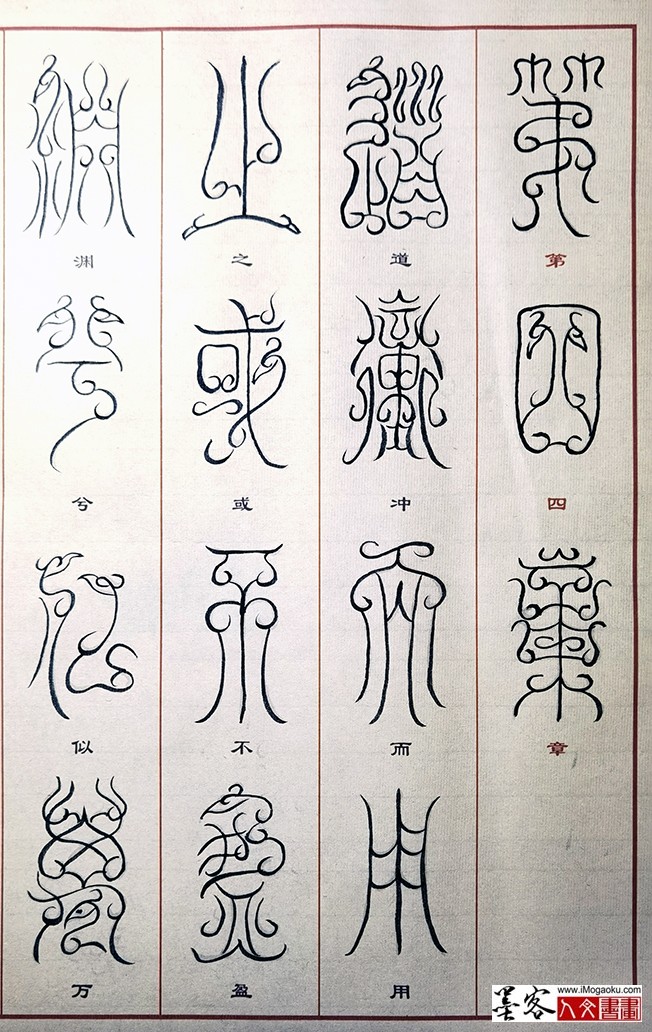 第四章
道冲而用
之或不盈
渊兮似万
墨客
www.iMogaoku.com
人文書畫